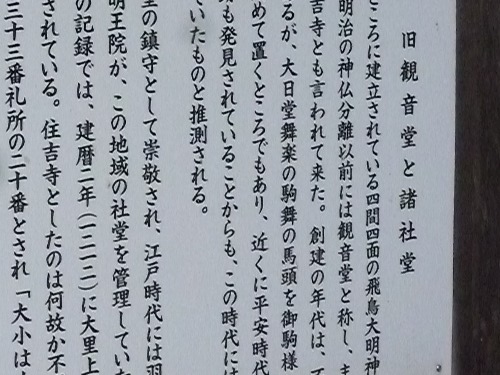 旧観音堂と諸社堂
ころに建立されている四間四面の飛鳥大明神
明治の神仏分離以前には観音堂と称し、ま
吉寺とも言われて来た。創建の年代は、不
るが、大日堂舞楽の駒舞の馬頭を御駒様
めて置くところでもあり、近くに平安時代
も発見されていることからも、この時代には
ていたものと推測される。
の鎮守として崇敬され、江戸時代には
明王院が、この地域の社堂を管理していた
の記録では、建暦二年(一二一二)に大里上
されている。住吉寺としたのは何故か不
三十三番札所の二十番とされ「大小は